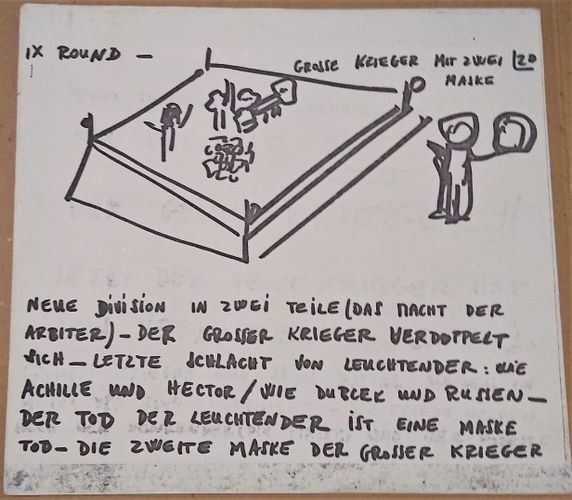 IX ROUND –
GROSSE KRIEGER MIT ZWEI
MASKE
NEUE DIVISION IN ZWEI TEILE (DAS MACHT DER
ARBITER) – DER GROSSER KRIEGER VERDOPPELT
SICH – LETZTE SCHLACHT VON LEUCHTENDER: WIE
ACHILLE UND HECTOR / WIE DUBCEK UND RUSSEN –
DER TOD DER LEUCHTENDER IST EINE MASKE
TOD – DIE ZWEITE MASKE DER GROSSER KRIEGER